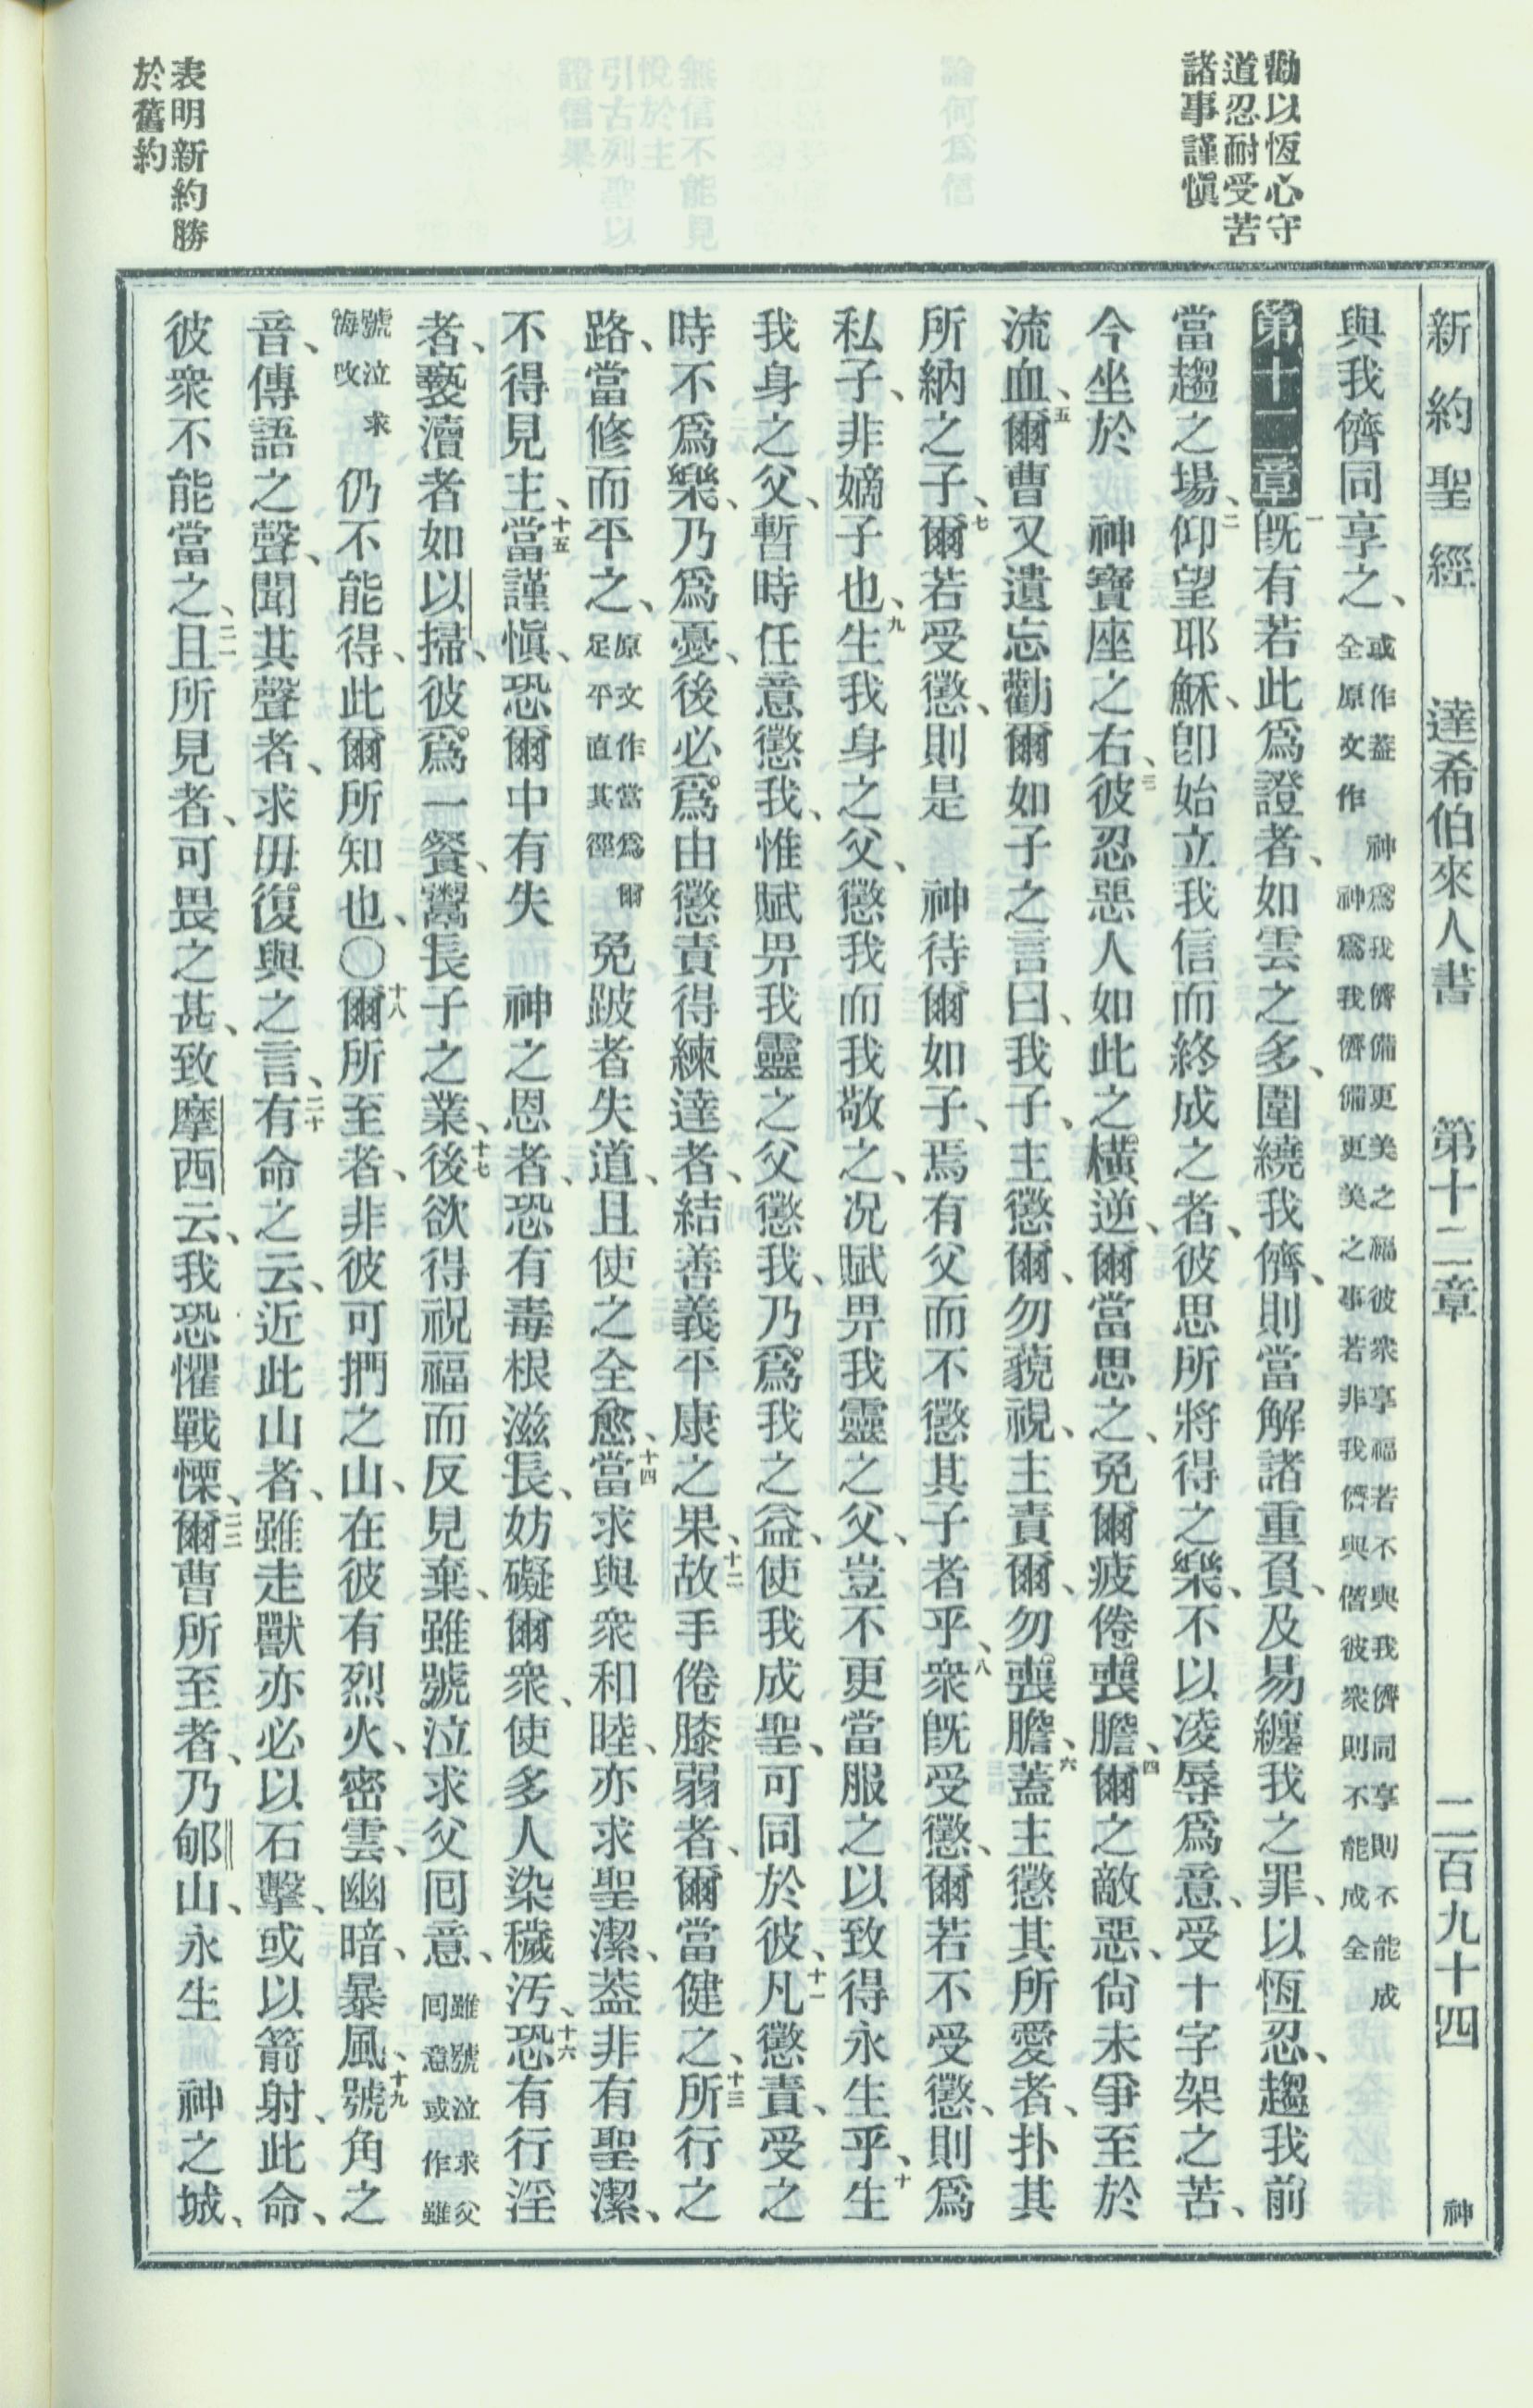 新約聖經 達希伯來人書 第十二章 二百九十四 神
勸以恆心守
道忍耐受苦
諸事謹愼
與我儕同享之、
或作蓋 神爲我儕備更美之福彼衆享福若不與我儕同享則不能成
全原文作 神爲我儕備更美之事若非我儕與偕彼衆則不能成全
第十二章 一旣有若此爲證者、如雲之多、圍繞我儕、則當解諸重負、及易纏我之罪、以恆忍、趨我前
當趨之場、二仰望耶穌、卽始立我信而終成之者、彼思所將得之樂、不以凌辱爲意、受十字架之苦、
今坐於 神寶座之右、三彼忍惡人如此之橫逆、爾當思之、免爾疲倦喪膽、四爾之敵惡、尙未爭至於
流血、五爾曹又遺忘勸爾如子之言曰、我子、主懲爾、勿藐視、主責爾、勿喪膽、六蓋主懲其所愛者、扑其
所納之子、七爾若受懲、則是 神待爾如子、焉有父而不懲其子者乎、八衆旣受懲、爾若不受懲、則爲
私子、非嫡子也、九生我身之父、懲我而我敬之、况賦畀我靈之父、豈不更當服之以致得永生乎、十生
我身之父、暫時任意懲我、惟賦畀我靈之父懲我、乃爲我之益、使我成聖、可同於彼、十一凡懲責、受之
時不爲樂、乃爲憂、後必爲由懲責得練達者、結善義平康之果、十二故手倦膝弱者、爾當健之、十三所行之
路、當修而平之、
原文作當爲爾
足平直其徑
免跛者失道、且使之全愈、十四當求與衆和睦、亦求聖潔、蓋非有聖潔、
不得見主、十五當謹愼、恐爾中有失 神之恩者、恐有毒根滋長、妨礙爾衆、使多人染穢汚、十六恐有行淫
者、褻瀆者如以掃、彼爲一餐、鬻長子之業、十七後欲得祝福而反見棄、雖號泣求父回意、
雖號泣求父
回意或作雖
號泣求
悔改
仍不能得、此爾所知也、〇十八爾所至者、非彼可捫之山、在彼有烈火、密雲、幽暗、暴風、十九號角之
音、傳語之聲、聞其聲者、求毋復與之言、二十有命之云、近此山者、雖走獸亦必以石擊、或以箭射、此命、
彼衆不能當之、二一且所見者、可畏之甚、致摩西云、我恐懼戰慄、二二爾曹所至者、乃郇山、永生 神之城、
表明新約勝
於舊約